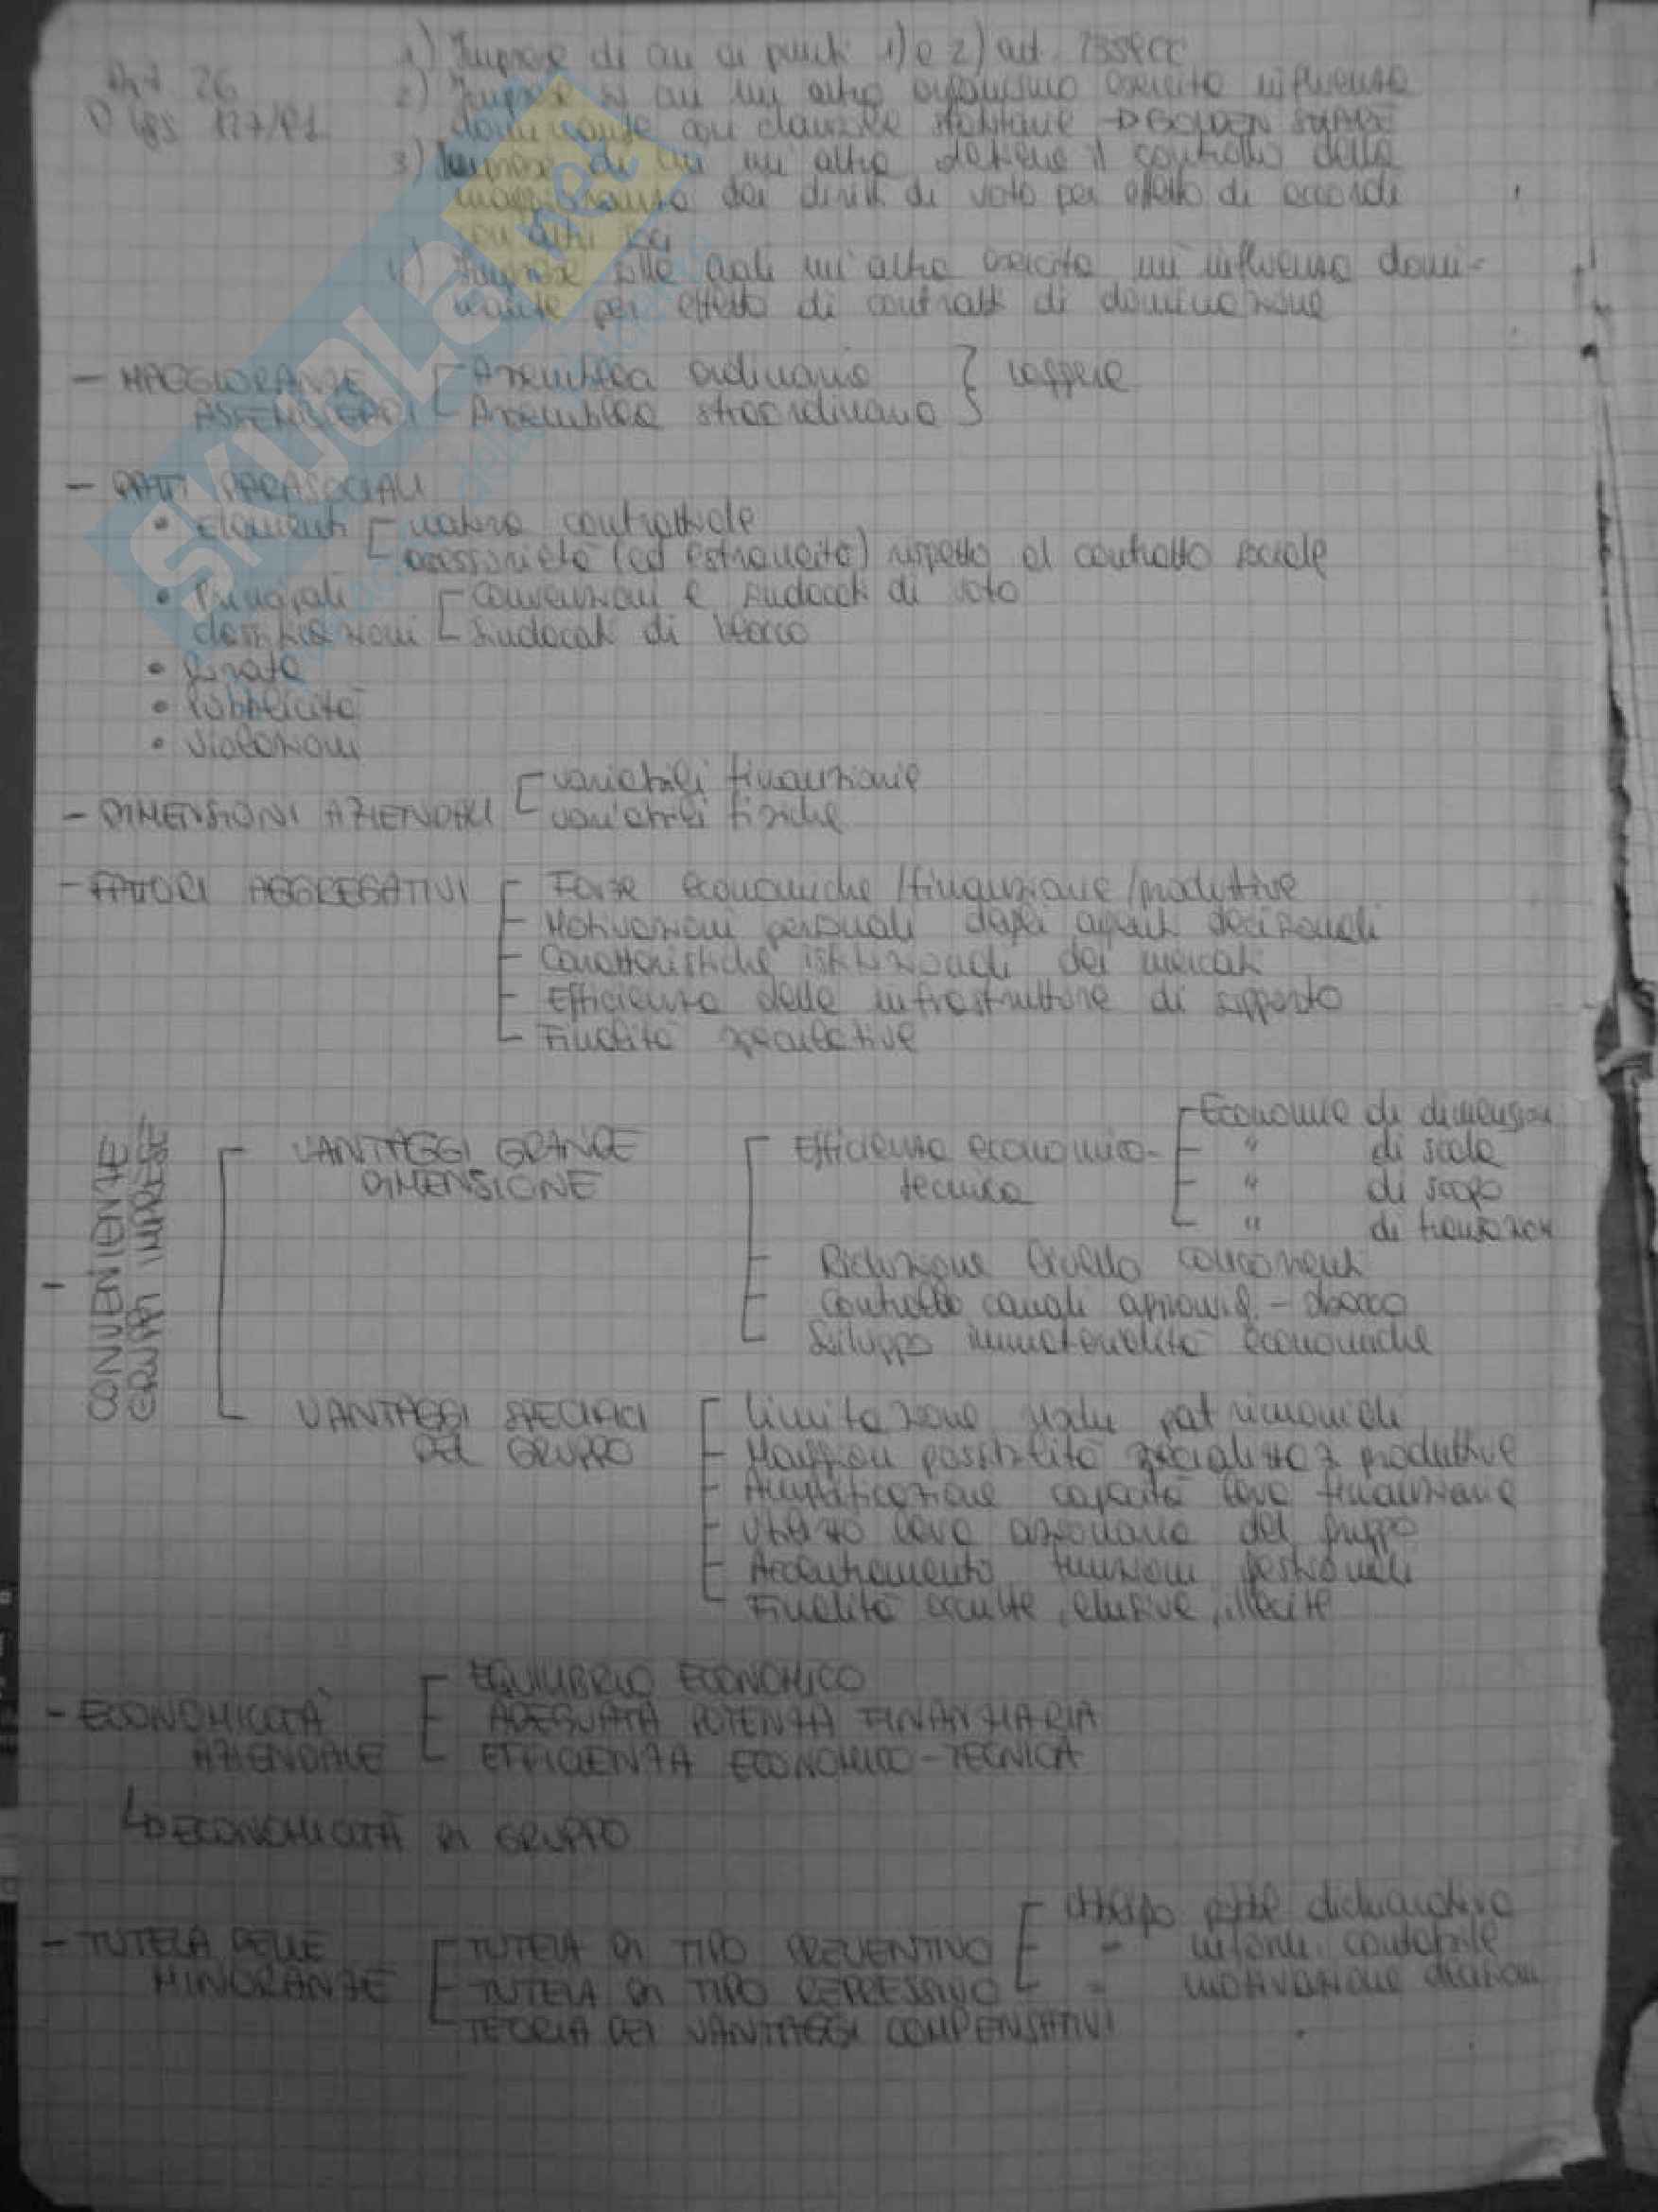 1) Imprese di cui ai punti 1) e 2) art. 2359 CC
Art 26
D lgs 127/91
2) Imprese su cui un altro organismo esercita influenza
dominante con clausole statutarie → GOLDEN SHARE
3) Imprese di cui un'altra detiene il controllo della
maggioranza dei diritti di voto per effetto di accordi
con altri soci
4) Imprese sulle quali un'altra esercita un'influenza domi-
nante per effetto di contratti di dominazione
- MAGGIORANZE Assemblea ordinaria } leggere
ASSEMBLEARI Assemblea straordinaria
- PATTI PARASOCIALI
• Elementi natura contrattuale
accessorietà (ed estraneità) rispetto al contratto sociale
• Principali Convenzioni e sindacati di voto
classificazioni Sindacati di blocco
• Durata
• Pubblicità
• Violazioni
- DIMENSIONI AZIENDALI variabili finanziarie
variabili fisiche
- FATTORI AGGREGATIVI Forze economiche/finanziarie/produttive
Motivazioni personali degli agenti decisionali
Caratteristiche istituzionali dei mercati
Efficienza delle infrastrutture di supporto
Finalità speculative
- CONVENIENZE
GRUPPI IMPRESE
VANTAGGI GRANDE Efficienza economico- Economie di dimensioni
DIMENSIONE tecnica " di scala
" di scopo
" di transazioni
Riduzione livello concorrenti
Controllo canali approvvig. - sbocco
Sviluppo immaterialità economiche
VANTAGGI SPECIFICI Limitazione rischi patrimoniali
DEL GRUPPO Maggiori possibilità specializzaz. produttive
Amplificazione capacità leva finanziaria
Utilizzo leva azionaria del gruppo
Accentramento funzioni gestionali
Finalità occulte, elusive, illecite
- ECONOMICITÀ EQUILIBRIO ECONOMICO
AZIENDALE ADEGUATA POTENZA FINANZIARIA
EFFICIENZA ECONOMICO-TECNICA
↳ ECONOMICITÀ DI GRUPPO
- TUTELA DELLE TUTELA DI TIPO PREVENTIVO obbligo dichiarativa
MINORANZE TUTELA DI TIPO REPRESSIVO " inform. contabile
TEORIA DEI VANTAGGI COMPENSATIVI " motivazione decisioni
SKUOLA.net